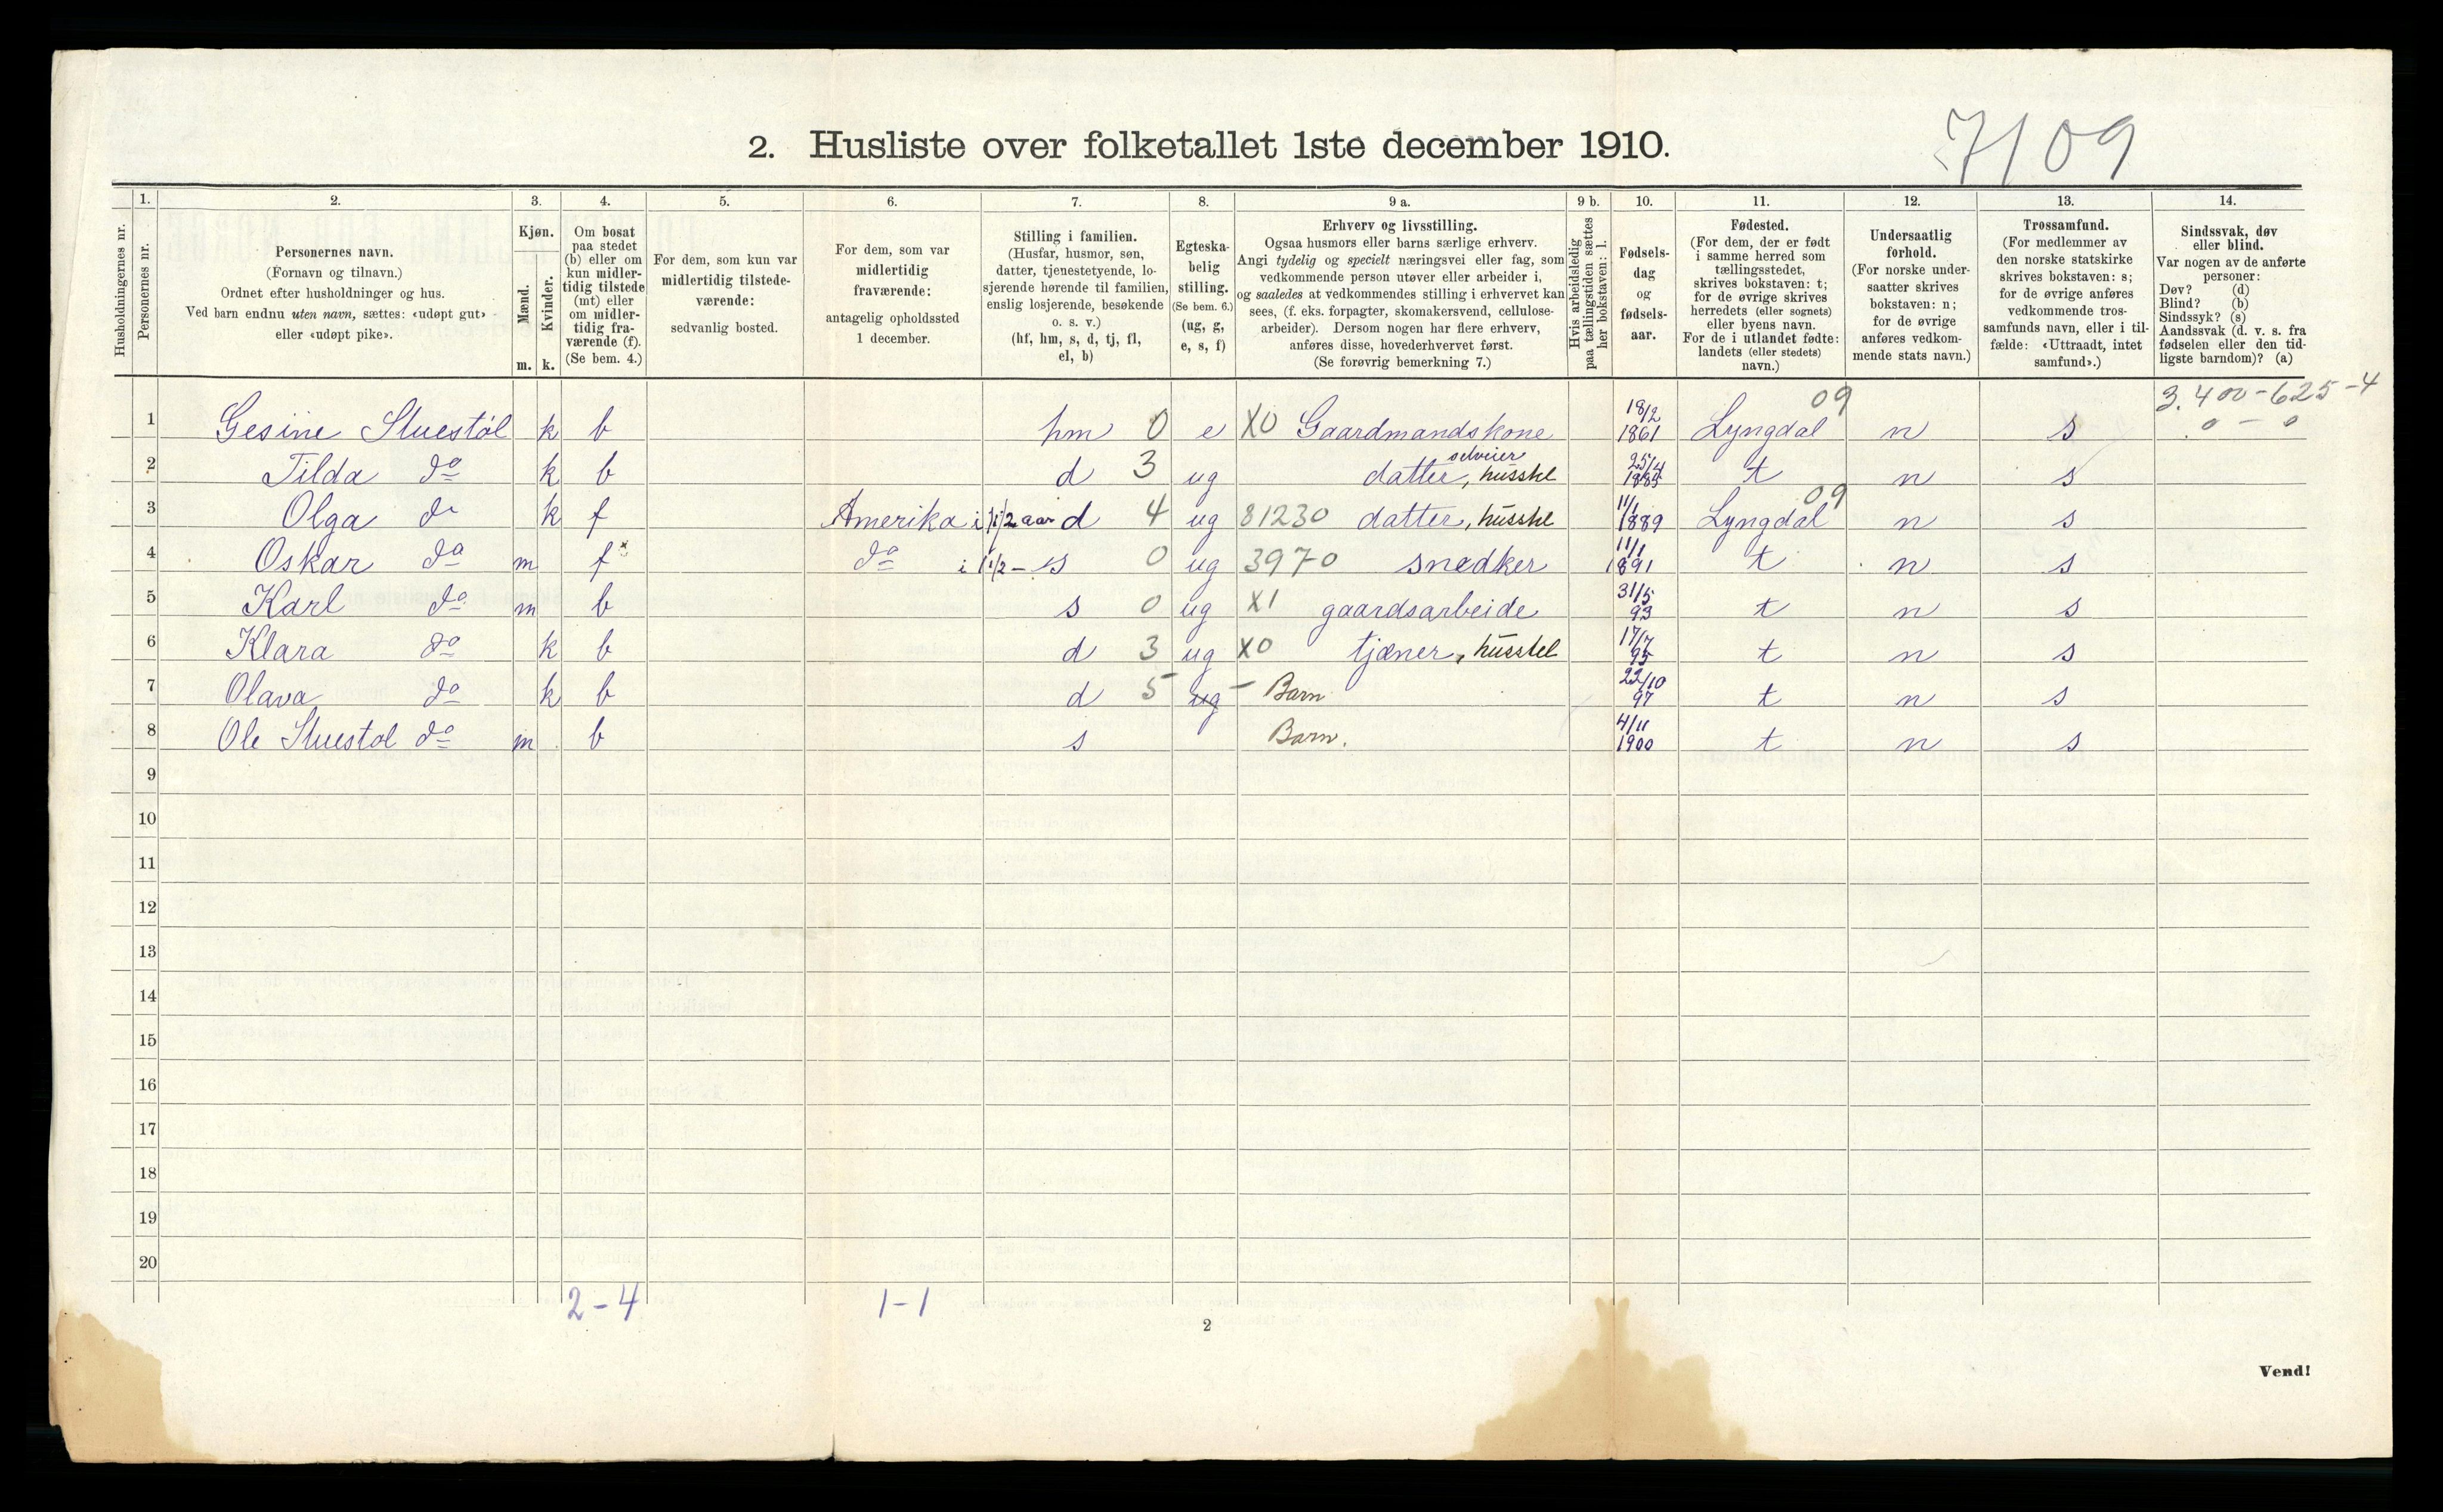 7109
2. Husliste over folketallet 1ste december 1910.
Husholdningernes nr.
1.
Personernes nr.
2.
Personernes navn.
(Fornavn og tilnavn.)
Ordnet efter husholdninger og hus.
Ved barn endnu uten navn, sættes: «udøpt gut»
eller «udøpt pike».
3.
Kjøn.
Mænd.
Kvinder.
m. k.
4.
Om bosat
paa stedet
(b) eller om
kun midler-
tidig tilstede
(mt) eller
om midler-
tidig fra-
værende (f).
(Se bem. 4.)
5.
For dem, som kun var
midlertidig tilstede-
værende:
sedvanlig bosted.
6.
For dem, som var
midlertidig
fraværende:
antagelig opholdssted
1 december.
7.
Stilling i familien.
(Husfar, husmor, søn,
datter, tjenestetyende, lo-
sjerende hørende til familien,
enslig losjerende, besøkende
o. s. v.)
(hf, hm, s, d, tj, fl,
el, b)
8.
Egteska-
belig
stilling.
(Se bem. 6.)
(ug, g,
e, s, f)
9 a.
Erhverv og livsstilling.
Ogsaa husmors eller barns særlige erhverv.
Angi tydelig og specielt næringsvei eller fag, som
vedkommende person utøver eller arbeider i,
og saaledes at vedkommendes stilling i erhvervet kan
sees, (f. eks. forpagter, skomakersvend, cellulose-
arbeider). Dersom nogen har flere erhverv,
anføres disse, hovederhvervet først.
(Se forøvrig bemerkning 7.)
9 b.
Hvis arbeidsledig
paa tællingstiden sættes
her bokstaven: l.
10.
Fødsels-
dag
og
fødsels-
aar.
11.
Fødested.
(For dem, der er født
i samme herred som
tællingsstedet,
skrives bokstaven: t;
for de øvrige skrives
herredets (eller sognets)
eller byens navn.
For de i utlandet fødte:
landets (eller stedets)
navn.)
12.
Undersaatlig
forhold.
(For norske under-
saatter skrives
bokstaven: n;
for de øvrige
anføres vedkom-
mende stats navn.)
13.
Trossamfund.
(For medlemmer av
den norske statskirke
skrives bokstaven: s;
for de øvrige anføres
vedkommende tros-
samfunds navn, eller i til-
fælde: «Uttraadt, intet
samfund».)
14.
Sindssvak, døv
eller blind.
Var nogen av de anførte
personer:
Døv? (d)
Blind? (b)
Sindssyk? (s)
Aandssvak (d. v. s. fra
fødselen eller den tid-
ligste barndom)? (a)
3.400-625-4
0 - 0
1 Gesine Stuestøl k b hm 0 e X0 Gaardmandskone 18/2 1861 Lyngdal 09 n s
2 Tilda do k b d 3 ug datter, selveier husstel 25/4 n t s
3 Olga do k f Amerika i 1/2 aar d 4 ug 81230 datter, husstel 11/1 1889 Lyngdal 09 n s
4 Oskar do m f x do i 1 1/2 - s 0 ug 3970 snedker 11/1 1891 t n s
5 Karl do m b s 0 ug X1 gaardsarbeide 31/5 93 t n s
6 Klara do k b d 3 ug X0 tjæner, husstel 17/7 95 t n s
7 Olava do k b d 5 ug - Barn 22/10 97 t n s
8 Ole Stuestøl do m b s Barn. 4/11 1900 t n s
9
10
11
12
13
14
15
16
17
18
19
20
2-4 1-1
2
Vend!